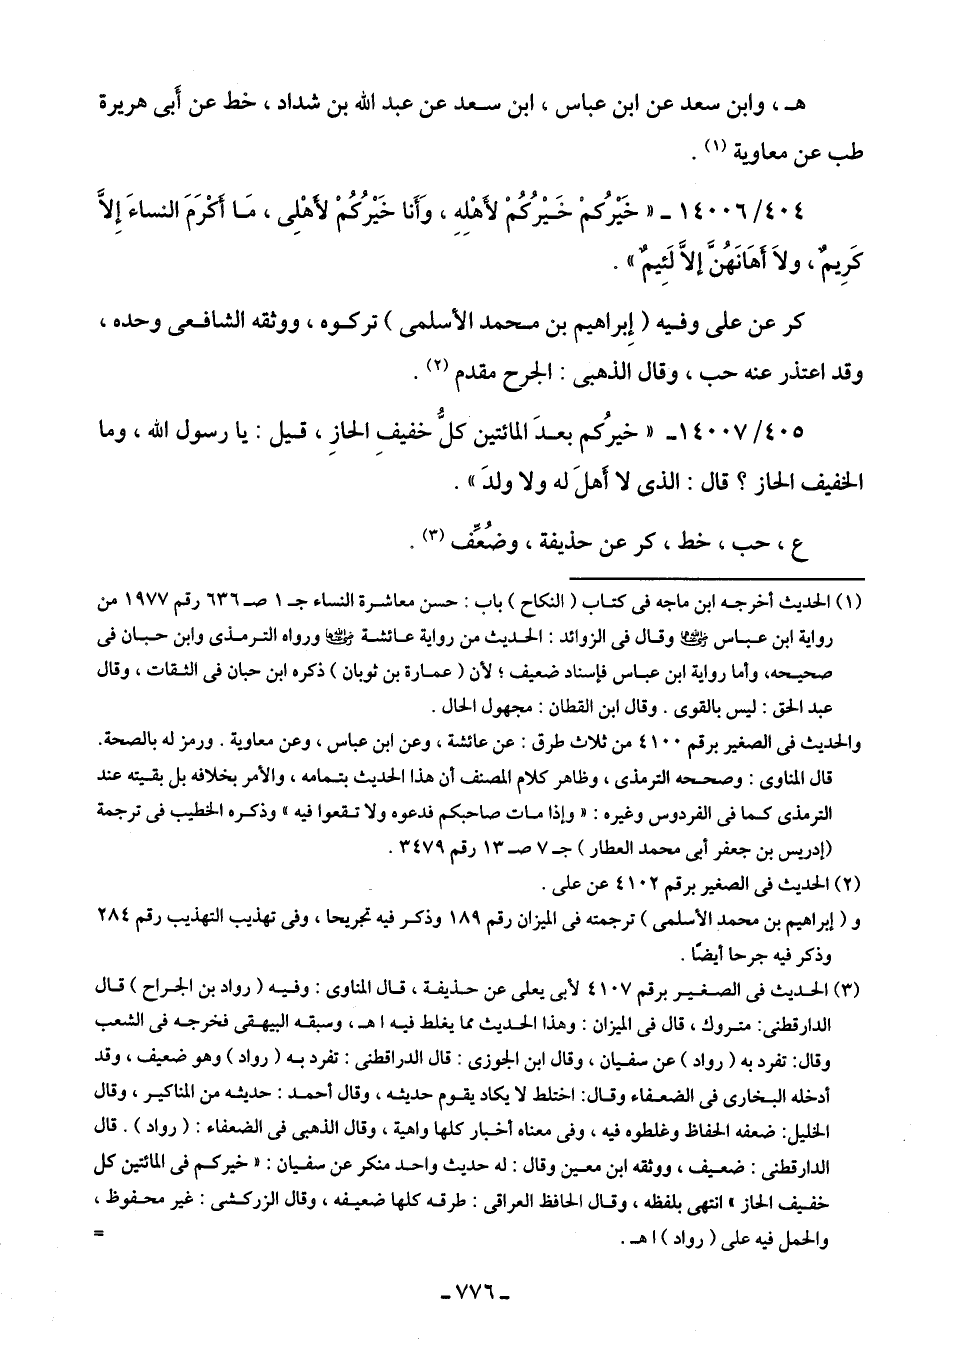 هـ ، وابن سعد عن ابن عباس ، ابن سعد عن عبد الله بن شداد ، خط عن أَبى هريرة
طب عن معاوية (١) .
١٤٠٠٦/٤٠٤ ـ « خَيْرُكُمْ خَيْرُكُمْ لأَهْلِهِ ، وَأَنا خَيْرُكُمْ لأَهْلِى ، مَا أَكْرَمَ النساءَ إِلاَّ
كَرِيمٌ ، ولاَ أَهَانَهُنَّ إِلاَّ لَئِيمٌ » .
كر عن على وفيه ( إِبراهيم بن محمد الأسلمى ) تركوه ، ووثقه الشافعى وحده ،
وقد اعتذر عنه حب ، وقال الذهبى : الجرح مقدم (٢) .
١٤٠٠٧/٤٠٥ـ « خيركم بعدَ المائتين كلُّ خفيفِ الحاز ، قيل : يا رسول الله ، وما
الخفيف الحاز ؟ قال : الذى لا أَهلَ له ولا ولدَ » .
ع ، حب ، خط ، كر عن حذيفة ، وضُعِّف (٣) .
(١) الحديث أخرجه ابن ماجه فى كتاب ( النكاح ) باب : حسن معاشرة النساء جـ ١ صـ ٦٣٦ رقم ١٩٧٧ من
رواية ابن عباس ﷺ وقال فى الزوائد : الحديث من رواية عائشة ﷺ ورواه الترمذى وابن حبان فى
صحيحه، وأما رواية ابن عباس فإسناد ضعيف ؛ لأن ( عمارة بن ثوبان ) ذكره ابن حبان فى الثقات ، وقال
عبد الحق : ليس بالقوى . وقال ابن القطان : مجهول الحال .
والحديث فى الصغير برقم ٤١٠٠ من ثلاث طرق : عن عائشة ، وعن ابن عباس ، وعن معاوية . ورمز له بالصحة.
قال المناوى : وصححه الترمذى ، وظاهر كلام المصنف أن هذا الحديث بتمامه ، والأمر بخلافه بل بقيته عند
الترمذى كما فى الفردوس وغيره : « وإذا مات صاحبكم فدعوه ولا تقعوا فيه » وذكره الخطيب فى ترجمة
(إدريس بن جعفر أبى محمد العطار ) جـ ٧ صـ ١٣ رقم ٣٤٧٩ .
(٢) الحديث فى الصغير برقم ٤١٠٢ عن على .
و ( إبراهيم بن محمد الأسلمى ) ترجمته فى الميزان رقم ١٨٩ وذكر فيه تجريحا ، وفى تهذيب التهذيب رقم ٢٨٤
وذكر فيه جرحا أيضًا .
(٣) الحديث فى الصغير برقم ٤١٠٧ لأبى يعلى عن حذيفة ، قال المناوى : وفيه ( رواد بن الجراح ) قال
الدارقطنى: متروك ، قال فى الميزان : وهذا الحديث مما يغلط فيه ا هـ ، وسبقه البيهقى فخرجه فى الشعب
وقال: تفرد به ( رواد ) عن سفيان ، وقال ابن الجوزى : قال الدراقطنى : تفرد به ( رواد ) وهو ضعيف ، وقد
أدخله البخارى فى الضعفاء وقال: اختلط لا يكاد يقوم حديثه ، وقال أحمد : حديثه من المناكير ، وقال
الخليل: ضعفه الحفاظ وغلطوه فيه ، وفى معناه أخبار كلها واهية ، وقال الذهبى فى الضعفاء : ( رواد ) . قال
الدارقطنى : ضعيف ، ووثقه ابن معين وقال : له حديث واحد منكر عن سفيان : « خيركم فى المائتين كل
خفيف الحاز » انتهى بلفظه ، وقال الحافظ العراقى : طرقه كلها ضعيفه ، وقال الزركشى : غير محفوظ ،
والحمل فيه على ( رواد ) ا هـ .
=
ـ ٧٧٦ ـ